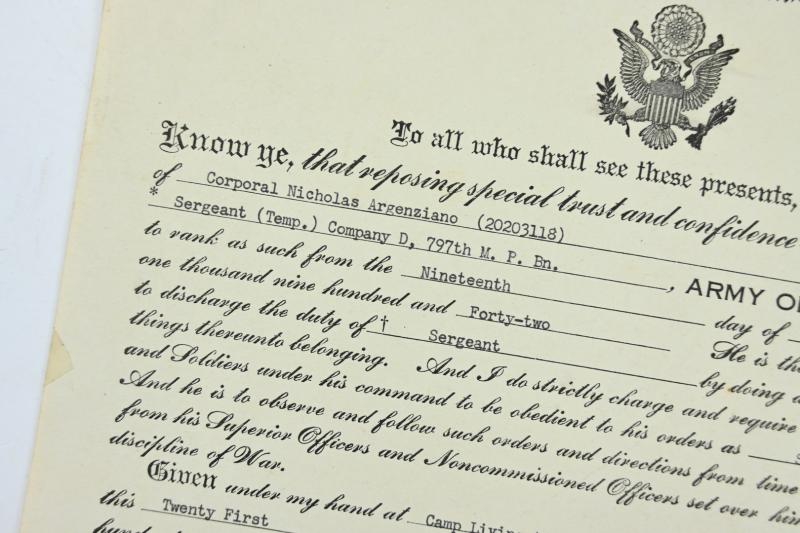 To all who shall see these presents,
Know ye, that reposing special trust and confidence
of Corporal Nicholas Argenziano (20203118)
* Sergeant (Temp.) Company D, 797th M. P. Bn. , ARMY O
to rank as such from the Nineteenth day of
one thousand nine hundred and Forty-two He is th
to discharge the duty of † Sergeant by doing a
things thereunto belonging. And I do strictly charge and require
and Soldiers under his command to be obedient to his orders as
And he is to observe and follow such orders and directions from time
from his Superior Officers and Noncommissioned Officers set over him
discipline of War.
Given under my hand at Camp Livin
this Twenty First